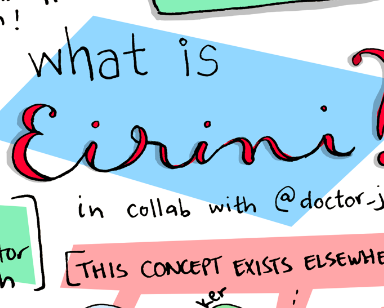 !
what is
Eirini?
in collab with @doctor_j
tor
[THIS CONCEPT EXISTS ELSEWHE